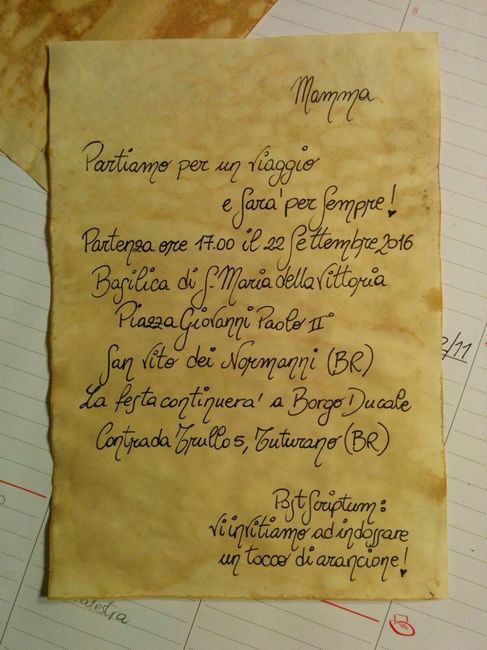 Mamma
Partiamo per un viaggio
e sarà per sempre!
Partenza ore 17.00 il 22 Settembre 2016
Basilica di S. Maria della Vittoria
Piazza Giovanni Paolo II°
San Vito dei Normanni (BR)
La festa continuerà a Borgo Ducale
Contrada Trullo 5, Tuturano (BR)
Post Scriptum:
vi invitiamo ad indossare
un tocco di arancione!
/11
8